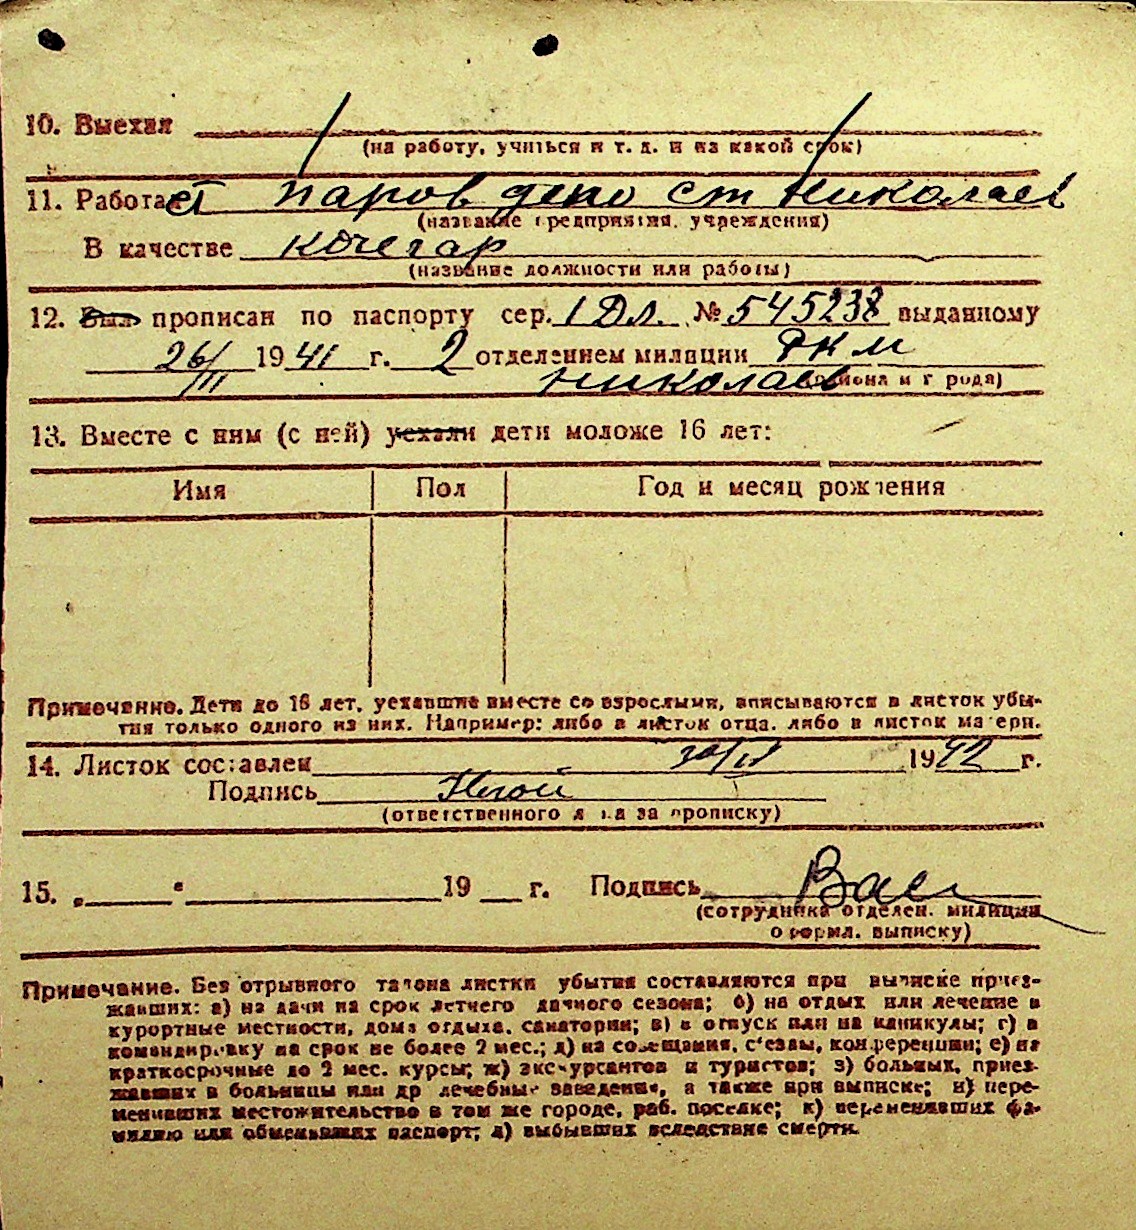 10. Выехал
(на работу, учиться и т. д. и на какой срок)
11. Работает паров депо ст Николаев
(название предприятия, учреждения)
В качестве кочегар
(название должности или работы)
12. Был прописан по паспорту сер. 1 Дл. № 545238 выданному
26/III 1941 г. 2 отделением милиции РКМ
Николаев (района и города)
13. Вместе с ним (с ней) уехали дети моложе 16 лет:
Имя Пол Год и месяц рождения
Примечание. Дети до 16 лет, уехавшие вместе со взрослыми, вписываются в листок убы-
тия только одного из них. Например: либо в листок отца, либо в листок матери.
14. Листок составлен 30/IV 1942 г.
Подпись
(ответственного лица за прописку)
15. „ " 19 г. Подпись Вас
(сотрудника отделен. милиции
оформл. выписку)
Примечание. Без отрывного талона листки убытия составляются при выписке приез-
жавших: а) на дачи на срок летнего дачного сезона; б) на отдых или лечение в
курортные местности, дома отдыха, санатории; в) в отпуск или на каникулы; г) в
командировку на срок не более 2 мес.; д) на совещания, съезды, конференции; е) на
краткосрочные до 2 мес. курсы; ж) экскурсантов и туристов; з) больных, приез-
жавших в больницы или др лечебные заведения, а также при выписке; и) пере-
менивших местожительство в том же городе, раб. поселке; к) переменивших фа-
милию или обменявших паспорт; л) выбывших вследствие смерти.